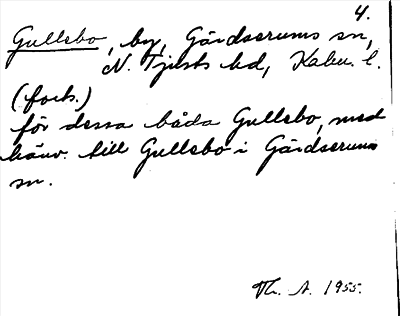 4.
Gullebo, by, Gärdserums sn,
N. Tjusts hd, Kalm. l.
(forts.)
för dessa båda Gullebo, med
hänv. till Gullebo i Gärdserums
sn.
Th. A. 1955.